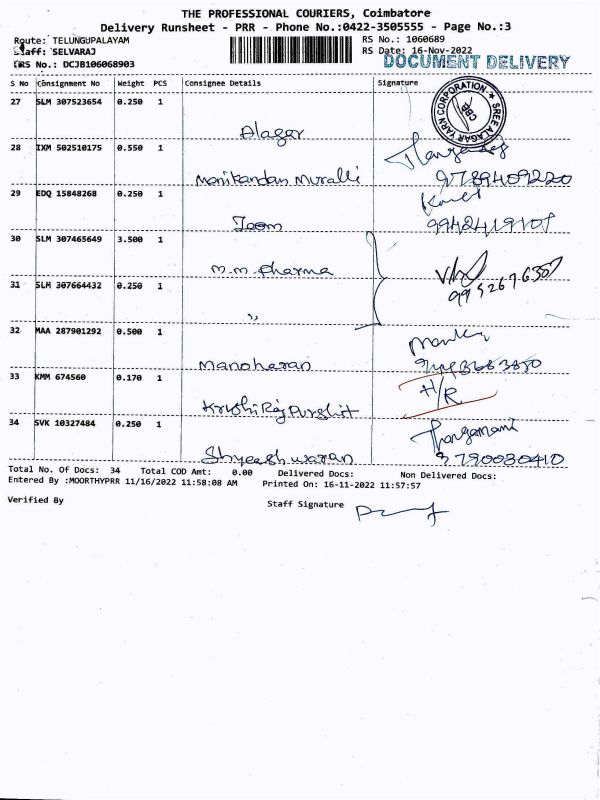 THE PROFESSIONAL COURIERS, Coimbatore
Delivery Runsheet - PRR - Phone No.:0422-3505555 - Page No.:3
Route: TELUNGUPALAYAM
RS No.: 1060689
Staff: SELVARAJ
RS Date: 16-Nov-2022
DRS No.: DCJB106068903
DOCUMENT DELIVERY
S No Consignment No Weight PCS Consignee Details Signature
27 SLM 307523654 0.250 1
SREE ALAGAR YARN CORPORATION
CBE
Alagar
28 IXM 502510175 0.550 1
Manikandan Muralli 9789409220
29 EDQ 15848268 0.250 1
9942419108
30 SLM 307465649 3.500 1
M.M. Pharma
31 SLM 307664432 0.250 1
"
32 MAA 287901292 0.500 1
Manoharan
33 KMM 674560 0.170 1
H/R
Krushi Raj Purohit
34 SVK 10327484 0.250 1
Thangamani
Shyeashwaran 3790030410
Total No. Of Docs: 34 Total COD Amt: 0.00 Delivered Docs: Non Delivered Docs:
Entered By :MOORTHYPRR 11/16/2022 11:58:08 AM Printed On: 16-11-2022 11:57:57
Verified By Staff Signature